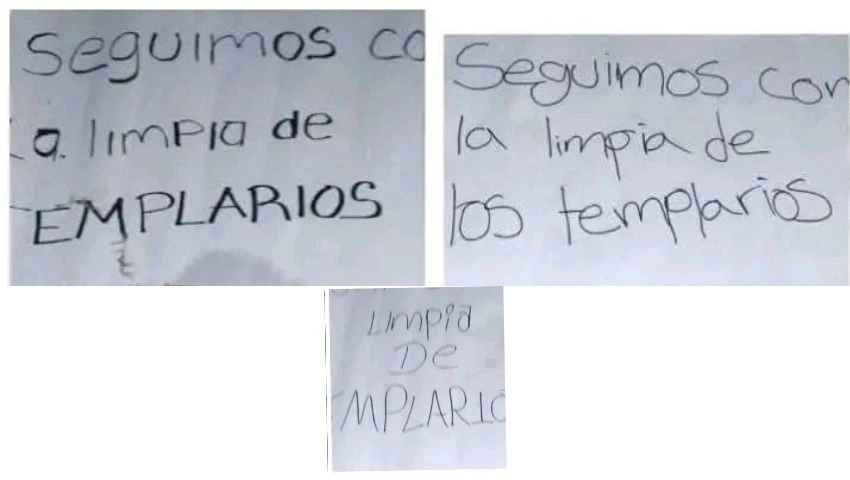 Seguimos co
a. limpia de
EMPLARIOS
Seguimos con
la limpia de
los templarios
Limpia
De
EMPLARIO